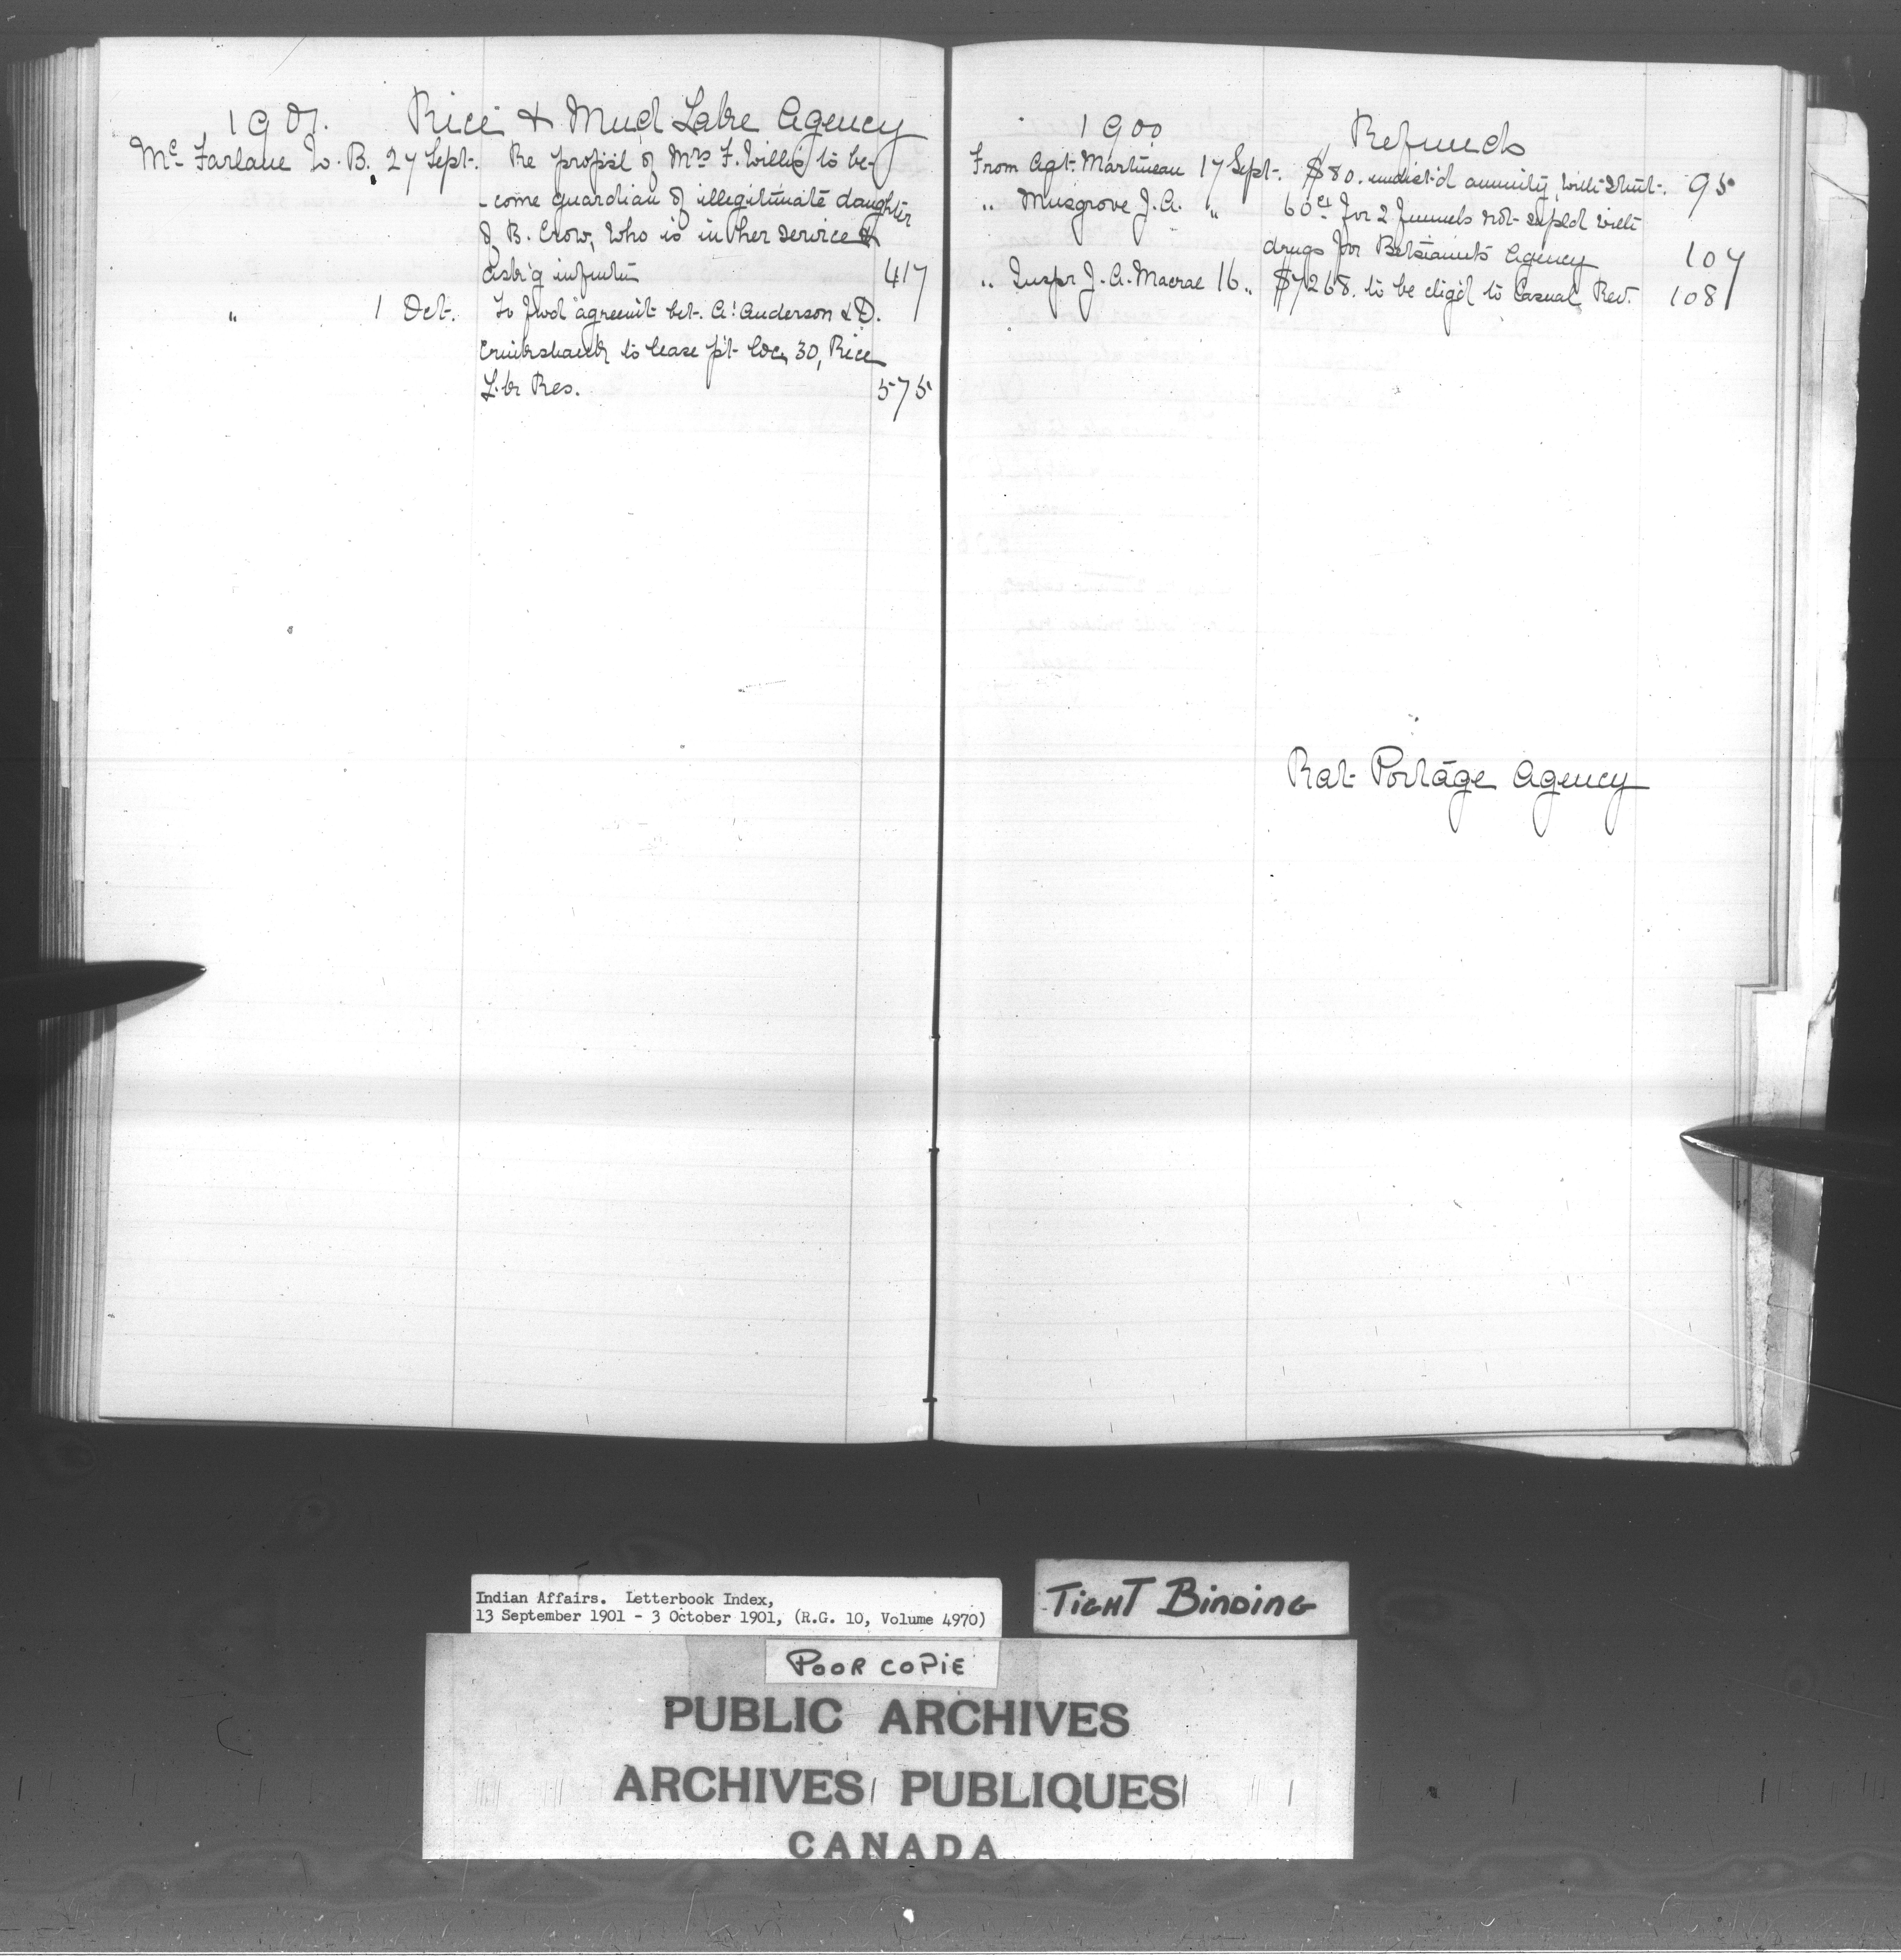 1901. Rice & Mud Lake Agency
McFarlane W. B. 27 Sept. Re propos'l of Mrs F. Willis to be-
-come guardian of illegitimate daughter
of B. Crow, who is in her service &
ask'g inform'tn 417
" 1 Oct. To fwd agreem't bet. A. Anderson & D.
Cruikshank to lease p't loc. 30, Rice
Lk Res. 575
1900 Refunds
From Agt. Martineau 17 Sept. $80. undist'd annuity with 95
" Musgrove J. A. " 60cts for 2 funnels not suppl'd with
drugs for Betsiamits Agency 107
" Inspr J. A. Macrae 16 " $7268. to be c'ig'd to Casual Rev. 108
Rat Portage Agency
Indian Affairs. Letterbook Index,
13 September 1901 - 3 October 1901, (R.G. 10, Volume 4970)
TIGHT BINDING
POOR COPIE
PUBLIC ARCHIVES
ARCHIVES PUBLIQUES
CANADA